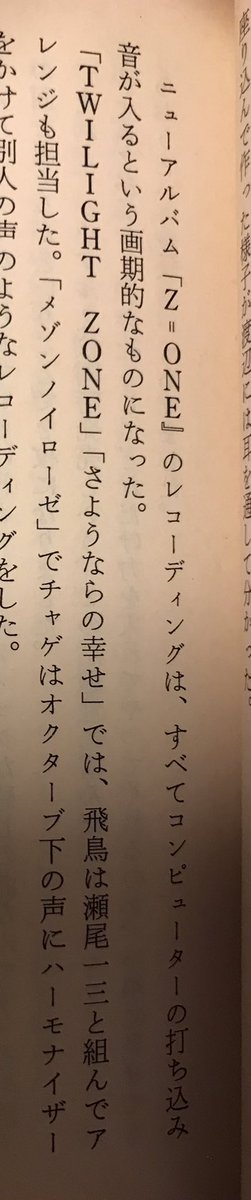 ニューアルバム「Z=ONE』のレコーディングは、すべてコンピューターの打ち込み
音が入るという画期的なものになった。
「TWILIGHT ZONE」「さようならの幸せ」では、飛鳥は瀬尾一三と組んでア
レンジも担当した。「メゾンノイローゼ」でチャゲはオクターブ下の声にハーモナイザー
をかけて別人の声のようなレコーディングをした。